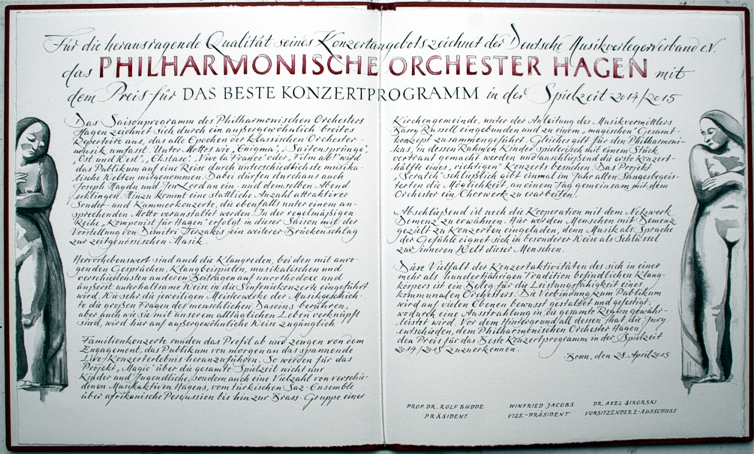 Für die herausragende Qualität seines Konzertangebots zeichnet der Deutsche Musikverlegerverband e.V.
das PHILHARMONISCHE ORCHESTER HAGEN mit
dem Preis für DAS BESTE KONZERTPROGRAMM in der Spielzeit 2014/2015
Das Saisonprogramm des Philharmonischen Orchesters
Hagen zeichnet sich durch ein außergewöhnlich breites
Repertoire aus, das alle Epochen der klassischen Orchester-
musik umfaßt. Unter Mottos wie „Enigma", „Saitensprünge",
„Ost und West", „Ekstase", „Vive la France" oder „Film ab!" wird
das Publikum auf eine Reise durch unterschiedlichste musika-
lische Welten mitgenommen. Dabei dürfen durchaus auch
Joseph Haydn und Jon Lord an ein- und demselben Abend
erklingen. Hinzu kommt eine stattliche Anzahl attraktiver
Sonder- und Kammerkonzerte, die ebenfalls unter einem an-
sprechenden Motto veranstaltet werden. In der regelmäßigen
Reihe „Komponist für Hagen" erfolgt in dieser Saison mit der
Vorstellung von Dimitri Terzakis ein weiterer Brückenschlag
zur zeitgenössischen Musik.
Hervorhebenswert sind auch die Klangreden, bei den mit anre-
genden Gesprächen, Klangbeispielen, musikalischen und
verschiedensten anderen Beiträgen auf unorthodoxe und
äußerst unterhaltsame Weise in die Sinfoniekonzerte eingeführt
wird. Wie sehr die jeweiligen Meisterwerke der Musikgeschich-
te die großen Fragen der menschlichen Daseins berühren,
aber auch wie sie mit unserem alltäglichen Leben verknüpft
sind, wird hier auf außergewöhnliche Weise zugänglich.
Familienkonzerte runden das Profil ab und zeugen von dem
Engagement, das Publikum von morgen an das spannende
Live-Konzerterlebnis heranzuführen. So werden für das
Projekt „Magic" über die gesamte Spielzeit nicht nur
Kinder und Jugendliche, sondern auch eine Vielzahl von verschie-
denen Musikaktiven Hagens, vom türkischen Saz-Ensemble
über afrikanische Percussion bis hin zur Brass-Gruppe einer
Kirchengemeinde, unter der Anleitung des Musikvermittlers
Barry Russell eingebunden und zu einem „magischen" Gesamt-
konzept zusammengeführt. Gleiches gilt für den Philharmoni-
kus, in dessen Rahmen Kinder spielerisch mit einem Stück
vertraut gemacht werden und anschließend die erste Konzert-
hälfte eines „richtigen" Konzerts besuchen. Das Projekt
„Scratch" schließlich gibt einmal im Jahr allen Sangesbegeis-
terten die Möglichkeit, an einem Tag gemeinsam mit dem
Orchester ein Chorwerk zu erarbeiten.
Abschließend ist noch die Kooperation mit dem Netzwerk
Demenz zu erwähnen. Hier werden Menschen mit Demenz
gezielt zu Konzerten eingeladen, denn Musik als Sprache
der Gefühle eignet sich in besonderer Weise als Schlüssel
zur inneren Welt dieser Menschen.
Diese Vielfalt der Konzertaktivitäten des sich in einer
mehr als hundertjährigen Tradition befindlichen Klang-
körpers ist ein Beleg für die Leistungsfähigkeit eines
kommunalen Orchesters. Die Verbindung zum Publikum
wird auf vielen Ebenen bewusst gestaltet und gefestigt,
wodurch eine Ausstrahlung in die gesamte Region gewähr-
leistet wird. Vor dem Hintergrund all dessen hat die Jury
entschieden, dem Philharmonischen Orchester Hagen
den Preis für das Beste Konzertprogramm in der Spielzeit
2014/2015 zuzuerkennen.
Bonn, den 28. April 2015
PROF. DR. ROLF BUDDE WINFRIED JACOBS DR. AXEL SIKORSKI
PRÄSIDENT VIZE-PRÄSIDENT VORSITZENDER E-AUSSCHUSS